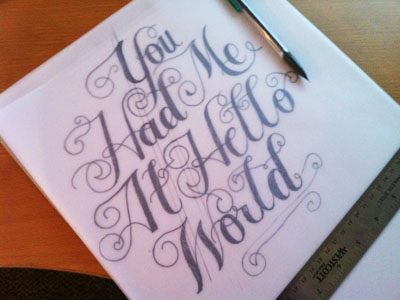 You
Had Me
At Hello
World
WESTCOTT